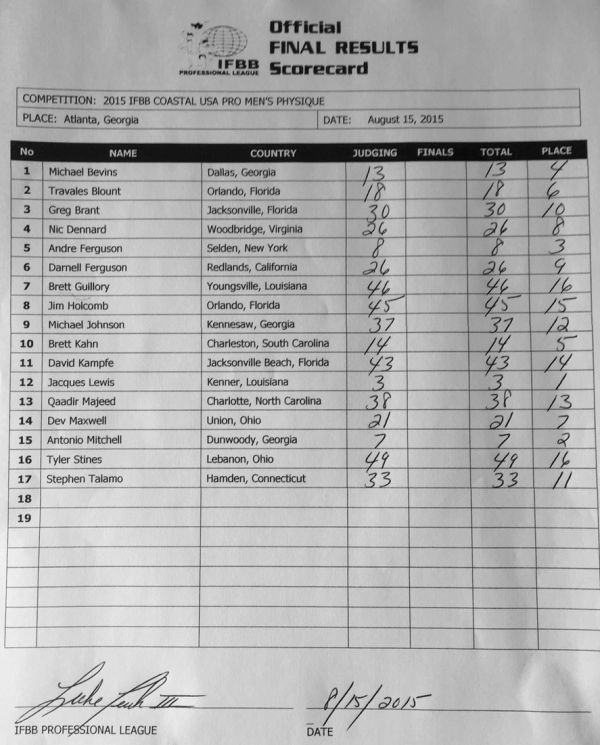 Official
FINAL RESULTS
Scorecard
IFBB
PROFESSIONAL LEAGUE
COMPETITION: 2015 IFBB COASTAL USA PRO MEN'S PHYSIQUE
PLACE: Atlanta, Georgia DATE: August 15, 2015
No NAME COUNTRY JUDGING FINALS TOTAL PLACE
1 Michael Bevins Dallas, Georgia 13 13 4
2 Travales Blount Orlando, Florida 18 18 6
3 Greg Brant Jacksonville, Florida 30 30 10
4 Nic Dennard Woodbridge, Virginia 26 26 8
5 Andre Ferguson Selden, New York 8 8 3
6 Darnell Ferguson Redlands, California 26 26 9
7 Brett Guillory Youngsville, Louisiana 46 46 16
8 Jim Holcomb Orlando, Florida 45 45 15
9 Michael Johnson Kennesaw, Georgia 37 37 12
10 Brett Kahn Charleston, South Carolina 14 14 5
11 David Kampfe Jacksonville Beach, Florida 43 43 14
12 Jacques Lewis Kenner, Louisiana 3 3 1
13 Qaadir Majeed Charlotte, North Carolina 38 38 13
14 Dev Maxwell Union, Ohio 21 21 7
15 Antonio Mitchell Dunwoody, Georgia 7 7 2
16 Tyler Stines Lebanon, Ohio 49 49 16
17 Stephen Talamo Hamden, Connecticut 33 33 11
18
19
8/15/2015
IFBB PROFESSIONAL LEAGUE DATE